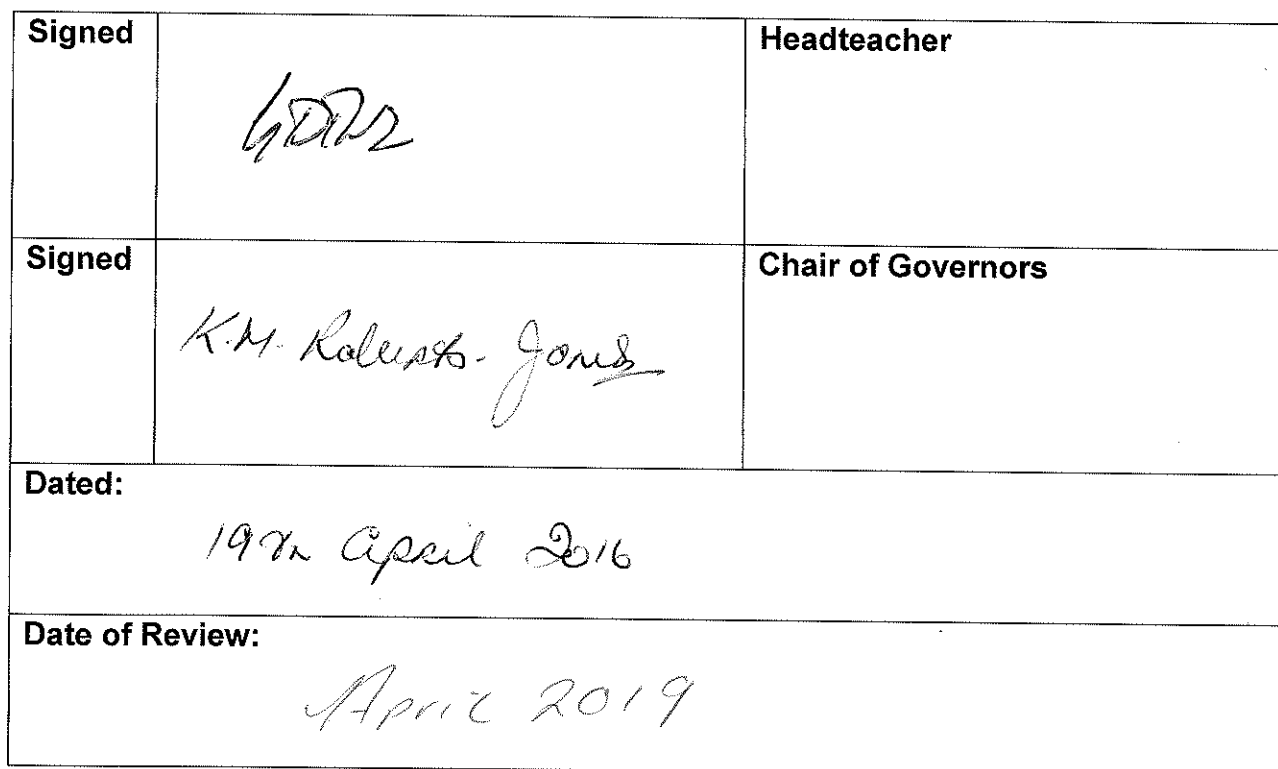 Signed
Headteacher
Signed
K.M. Roberts-Jones
Chair of Governors
Dated:
19th April 2016
Date of Review:
April 2019